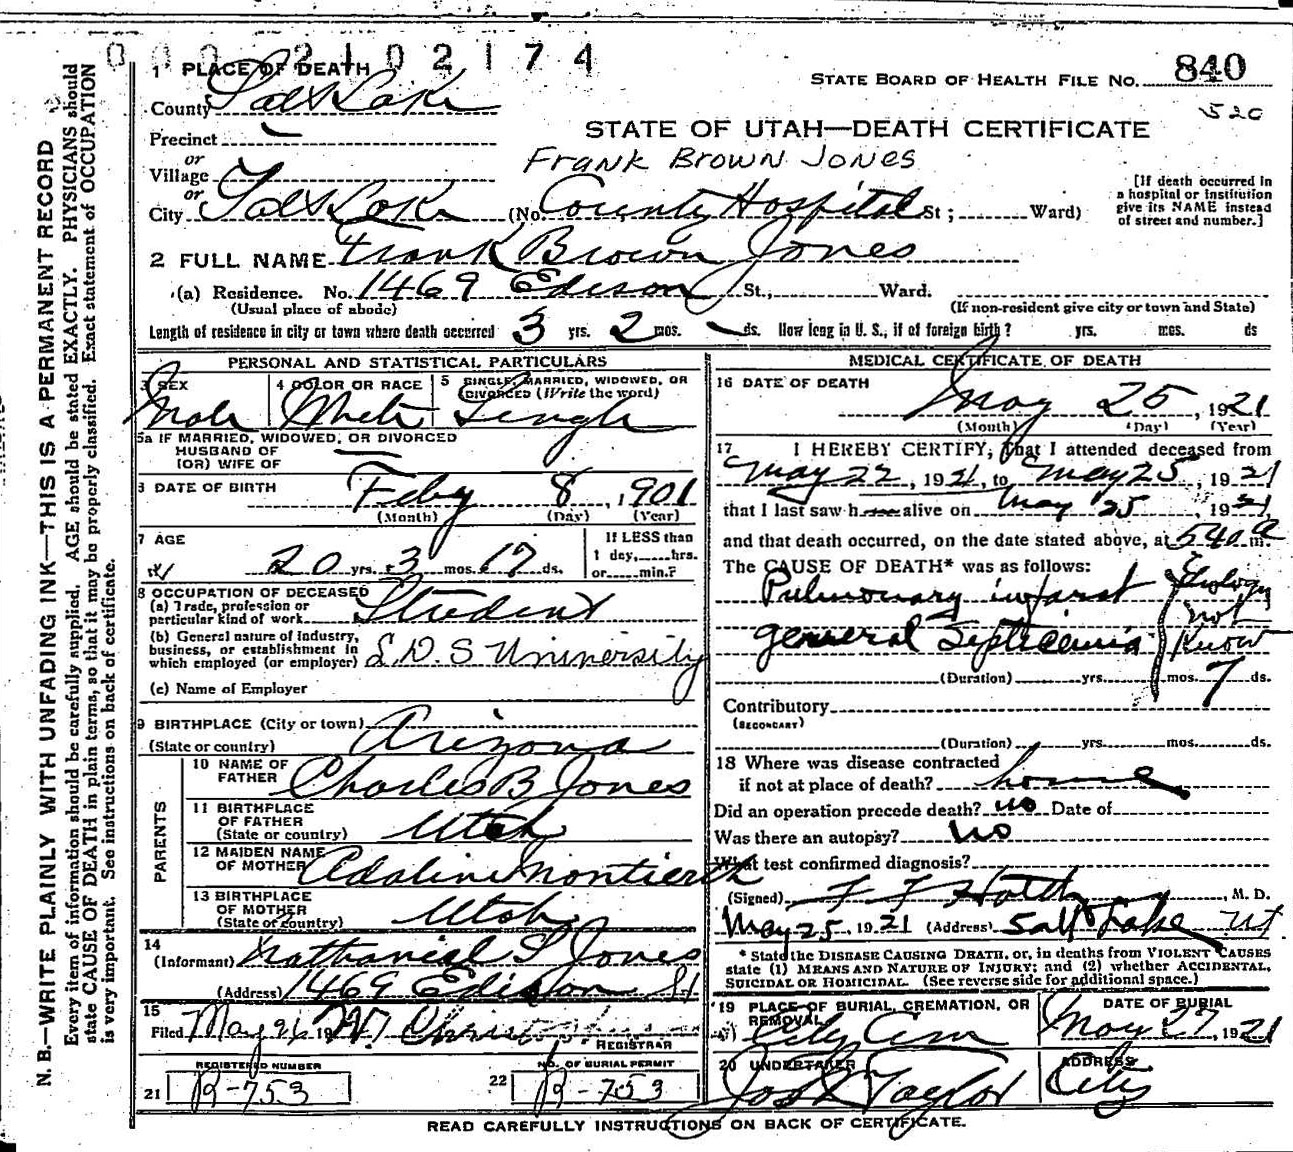 0002102174
1 PLACE OF DEATH
STATE BOARD OF HEALTH FILE NO. 840
County Salt Lake
520
Precinct —
STATE OF UTAH—DEATH CERTIFICATE
or
Village
Frank Brown Jones
or
City Salt Lake (No. County Hospital St; Ward)
[If death occurred in
a hospital or institution
give its NAME instead
of street and number.]
2 FULL NAME Frank Brown Jones
(a) Residence. No. 1469 Edison St., Ward.
(Usual place of abode) (If non-resident give city or town and State)
Length of residence in city or town where death occurred 3 yrs. 2 mos. — ds. How long in U. S., if of foreign birth? yrs. mos. ds
PERSONAL AND STATISTICAL PARTICULARS
3 SEX Male
4 COLOR OR RACE White
5 SINGLE, MARRIED, WIDOWED, OR
DIVORCED (Write the word)
Single
5a IF MARRIED, WIDOWED, OR DIVORCED
HUSBAND OF
(OR) WIFE OF —
6 DATE OF BIRTH Feby 8, 1901
(Month) (Day) (Year)
7 AGE
20 yrs. 3 mos. 17 ds.
If LESS than
1 day, hrs.
or min.?
8 OCCUPATION OF DECEASED
(a) Trade, profession or
particular kind of work Student
(b) General nature of industry,
business, or establishment in
which employed (or employer) L.D.S University
(c) Name of Employer
9 BIRTHPLACE (City or town)
(State or country) Arizona
PARENTS
10 NAME OF
FATHER Charles B Jones
11 BIRTHPLACE
OF FATHER
(State or country) Utah
12 MAIDEN NAME
OF MOTHER Adaline Montierth
13 BIRTHPLACE
OF MOTHER
(State or country) Utah
14
(Informant) Nathanial Jones
(Address) 1469 Edison St
15
Filed May 26 19
REGISTRAR
REGISTERED NUMBER
21 R-753
NO. OF BURIAL PERMIT
22 R-753
MEDICAL CERTIFICATE OF DEATH
16 DATE OF DEATH
May 25, 1921
(Month) (Day) (Year)
17 I HEREBY CERTIFY, That I attended deceased from
May 22, 1921, to May 25, 1921
that I last saw h alive on May 25, 1921,
and that death occurred, on the date stated above, at 540 a m.
The CAUSE OF DEATH* was as follows:
Pulmonary infarct
general Septicemia
Etiology
not
Know
(Duration) yrs. mos. 7 ds.
Contributory
(SECONDARY)
(Duration) yrs. mos. ds.
18 Where was disease contracted
if not at place of death? home
Did an operation precede death? no Date of
Was there an autopsy? no
What test confirmed diagnosis?
(Signed) F F Hatch, M. D.
May 25, 1921 (Address) Salt Lake Ut
* State the DISEASE CAUSING DEATH, or, in deaths from VIOLENT CAUSES
state (1) MEANS AND NATURE OF INJURY; and (2) whether ACCIDENTAL,
SUICIDAL OR HOMICIDAL. (See reverse side for additional space.)
19 PLACE OF BURIAL, CREMATION, OR
REMOVAL
City Cem
DATE OF BURIAL
May 27, 1921
20 UNDERTAKER
Jos Taylor
ADDRESS
City
READ CAREFULLY INSTRUCTIONS ON BACK OF CERTIFICATE.
N. B.—WRITE PLAINLY WITH UNFADING INK—THIS IS A PERMANENT RECORD
Every item of information should be carefully supplied. AGE should be stated EXACTLY. PHYSICIANS should
state CAUSE OF DEATH in plain terms, so that it may be properly classified. Exact statement of OCCUPATION
is very important. See instructions on back of certificate.